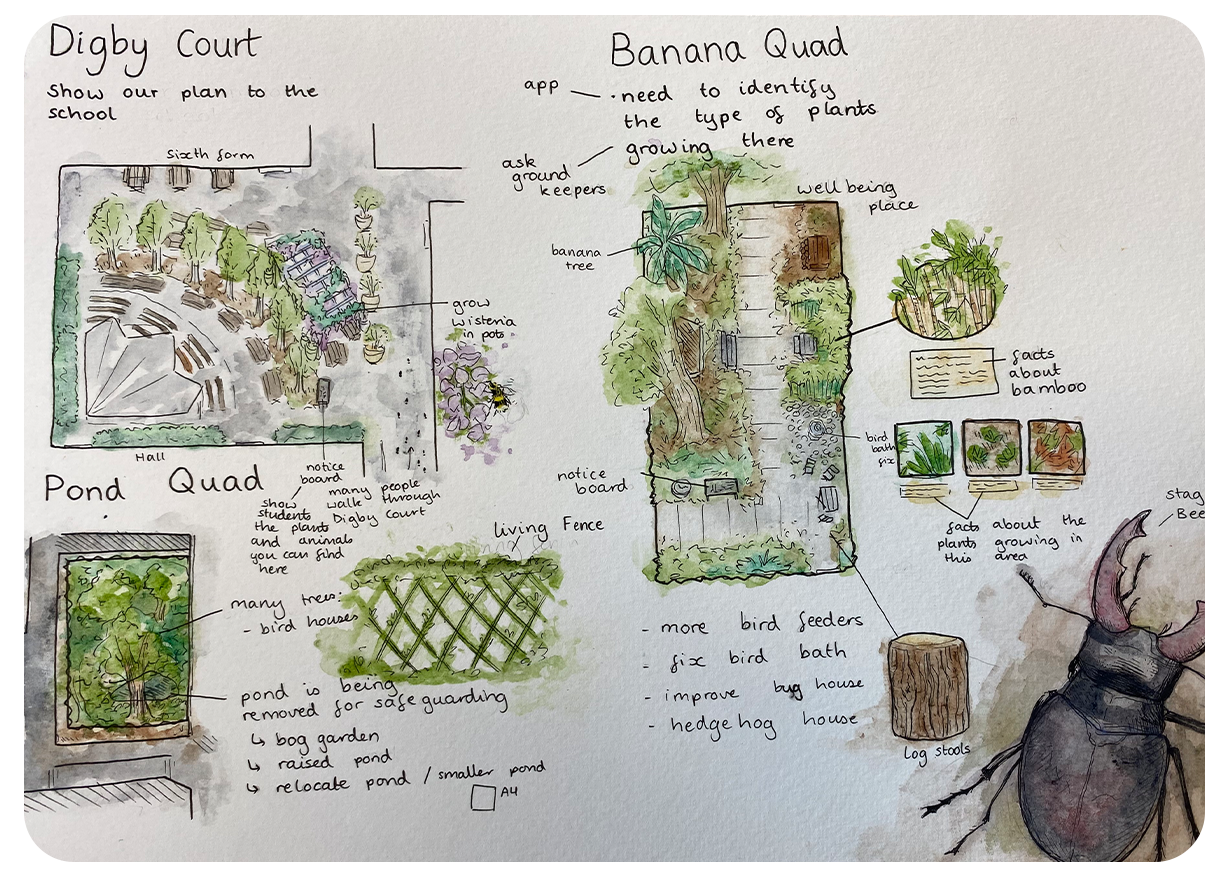 Digby Court
Show our plan to the
school
Sixth form
grow
wisteria
in pots
Hall
notice
board
show
students
the plants
and animals
you can find
here
many people
walk through
Digby Court
Banana Quad
app
· need to identify
the type of plants
growing there
ask
ground
keepers
well being
place
banana
tree
facts
about
bamboo
bird
bath
fix
notice
board
facts about the
plants growing in
this area
- more bird feeders
- fix bird bath
- improve bug house
- hedgehog house
Log stools
stag
Bee
Pond Quad
living Fence
many trees:
- bird houses
pond is being
removed for safeguarding
↳ bog garden
↳ raised pond
↳ relocate pond / smaller pond
A4